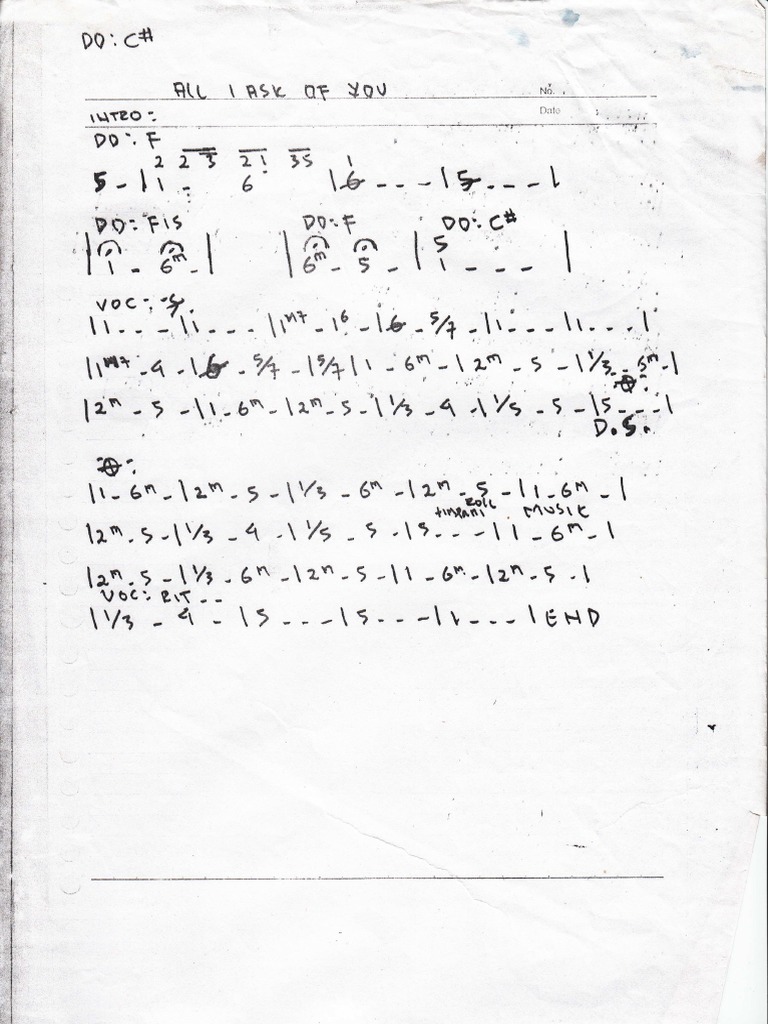 DO: C#
ALL I ASK OF YOU
No.
Date
INTRO:
DO: F
2 2 3 2 1 35 1
5 - | 1 - 6 | 6 - - - | 5 - - - |
DO: FIS DO: F DO: C#
5
| 1 - 6m - | | 6m - 5 - | 1 - - - |
VOC:
| 1 - - - | 1 - - - | 1M7 - 16 - | 6 - 5/7 - | 1 - - - | 1 - - - |
| 1M7 - 4 - | 6 - 5/7 - | 5/7 | 1 - 6m - | 2m - 5 - | 1/3 - - 5m - |
| 2m - 5 - | 1 - 6m - | 2m - 5 - | 1/3 - 4 - | 1/5 - 5 - | 5 - - - |
D.S.
| 1 - 6m - | 2m - 5 - | 1/3 - 6m - | 2m - 5 - | 1 - 6m - |
timpani roll MUSIK
| 2m - 5 - | 1/3 - 4 - | 1/5 - 5 - | 5 - - - | 1 - 6m - |
| 2m - 5 - | 1/3 - 6m - | 2m - 5 - | 1 - 6m - | 2m - 5 - |
VOC: RIT - -
| 1/3 - 4 - | 5 - - - | 5 - - - | 1 - - - | END